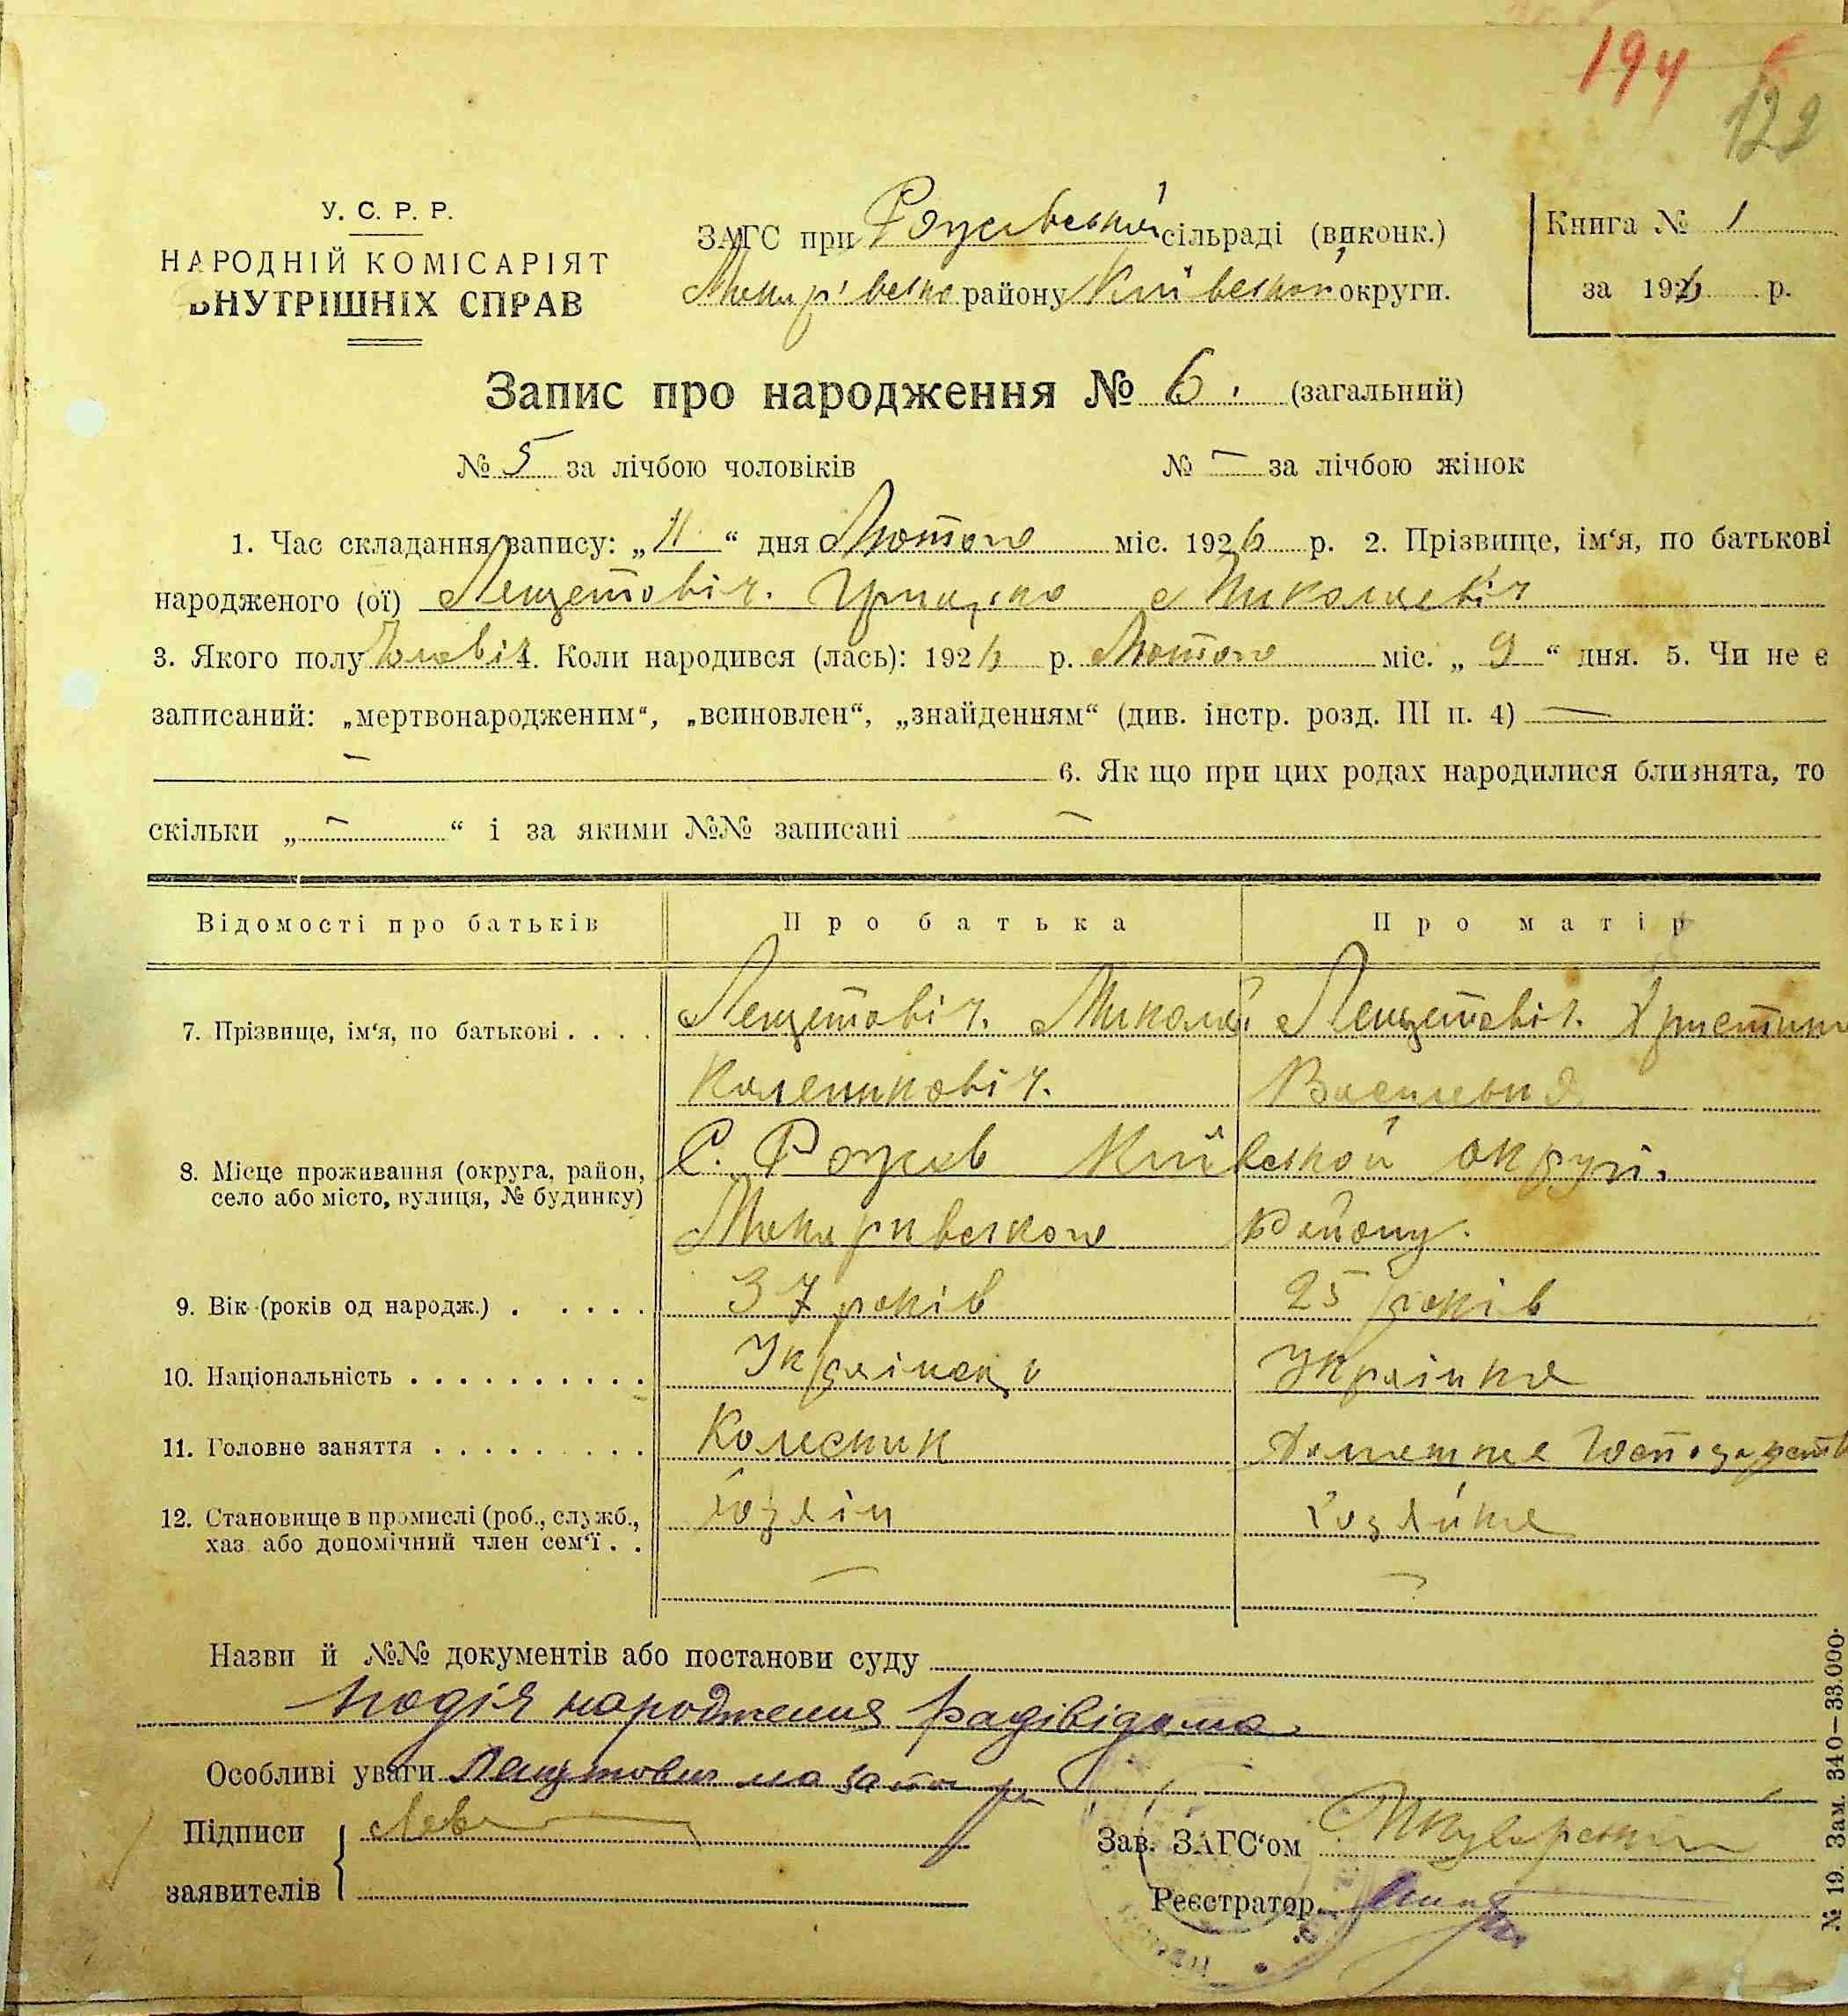 194
122
У. С. Р. Р.
НАРОДНІЙ КОМІСАРІЯТ
ВНУТРІШНІХ СПРАВ
ЗАГС при сільраді (виконк.)
району Київської округи.
Книга № 1
за 1926 р.
Запис про народження № 6. (загальний)
№ 5 за лічбою чоловіків
№ — за лічбою жінок
1. Час складання запису: „11“ дня Лютого міс. 1926 р. 2. Прізвище, ім‘я, по батькові
народженого (ої) Ленцетовіч. Грицько Миколаєвіч
3. Якого полу Чоловіч. 4. Коли народився (лась): 1926 р. Лютого міс. „9“ дня. 5. Чи не є
записаний: „мертвонародженим“, „всиновлен“, „знайденням“ (див. інстр. розд. III п. 4) —
— 6. Як що при цих родах народилися близнята, то
скільки „—“ і за якими №№ записані —
Відомості про батьків
Про батька
Про матір
7. Прізвище, ім‘я, по батькові . . . .
Ленцетовіч. Миколай
Ленцетовіч. Христина
Василевна
8. Місце проживання (округа, район,
село або місто, вулиця, № будинку)
С. Рожев Київської округи.
Макаривського Району.
9. Вік (років од народж.) . . . . .
37 років
25 років
10. Національність . . . . . . . . . .
Українець
Українка
11. Головне заняття . . . . . . . . .
Колесник
Домашне Господарств
12. Становище в промислі (роб., служб.,
хаз. або допомічний член сем‘ї . .
Хозяін
Хозяйка
— —
Назви й №№ документів або постанови суду
подія народження Радівідома
Особливі уваги
Підписи
заявителів
Зав. ЗАГС‘ом
Реєстратор
№ 19. Зам. 340—33.000.